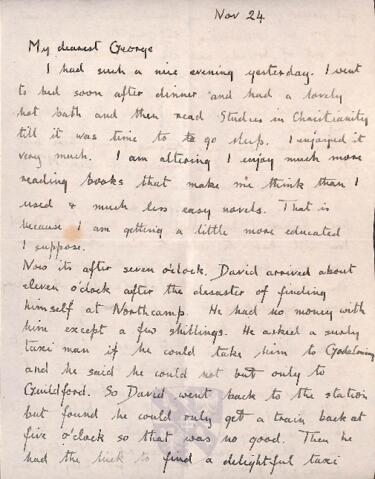 Nov 24
My dearest George
I had such a nice evening yesterday. I went
to bed soon after dinner and had a lovely
hot bath and then read Studies in Christianity
till it was time to to go sleep. I enjoyed it
very much. I am altering I enjoy much more
reading books that make me think than I
used & much less easy novels. That is
because I am getting a little more educated
I suppose.
Now its after seven o'clock. David arrived about
eleven o'clock after the desaster of finding
himself at Northcamp. He had no money with
him except a few shillings. He asked a surly
taxi man if he could take him to Godalming
and he said he could not but only to
Guildford. So David went back to the station
but found he could only get a train back at
five o'clock so that was no good. Then he
had the luck to find a delightful taxi